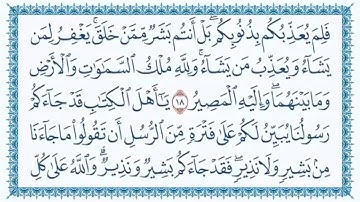 فَلِمَ يُعَذِّبُكُم بِذُنُوبِكُم ۖ بَلْ أَنتُم بَشَرٌ مِّمَّنْ خَلَقَ ۚ يَغْفِرُ لِمَن
يَشَآءُ وَيُعَذِّبُ مَن يَشَآءُ ۚ وَلِلَّهِ مُلْكُ ٱلسَّمَٰوَٰتِ وَٱلْأَرْضِ
وَمَا بَيْنَهُمَا ۖ وَإِلَيْهِ ٱلْمَصِيرُ ١٨ يَٰٓأَهْلَ ٱلْكِتَٰبِ قَدْ جَآءَكُمْ
رَسُولُنَا يُبَيِّنُ لَكُمْ عَلَىٰ فَتْرَةٍ مِّنَ ٱلرُّسُلِ أَن تَقُولُوا۟ مَا جَآءَنَا
مِنۢ بَشِيرٍ وَلَا نَذِيرٍ ۖ فَقَدْ جَآءَكُم بَشِيرٌ وَنَذِيرٌ ۗ وَٱللَّهُ عَلَىٰ كُلِّ